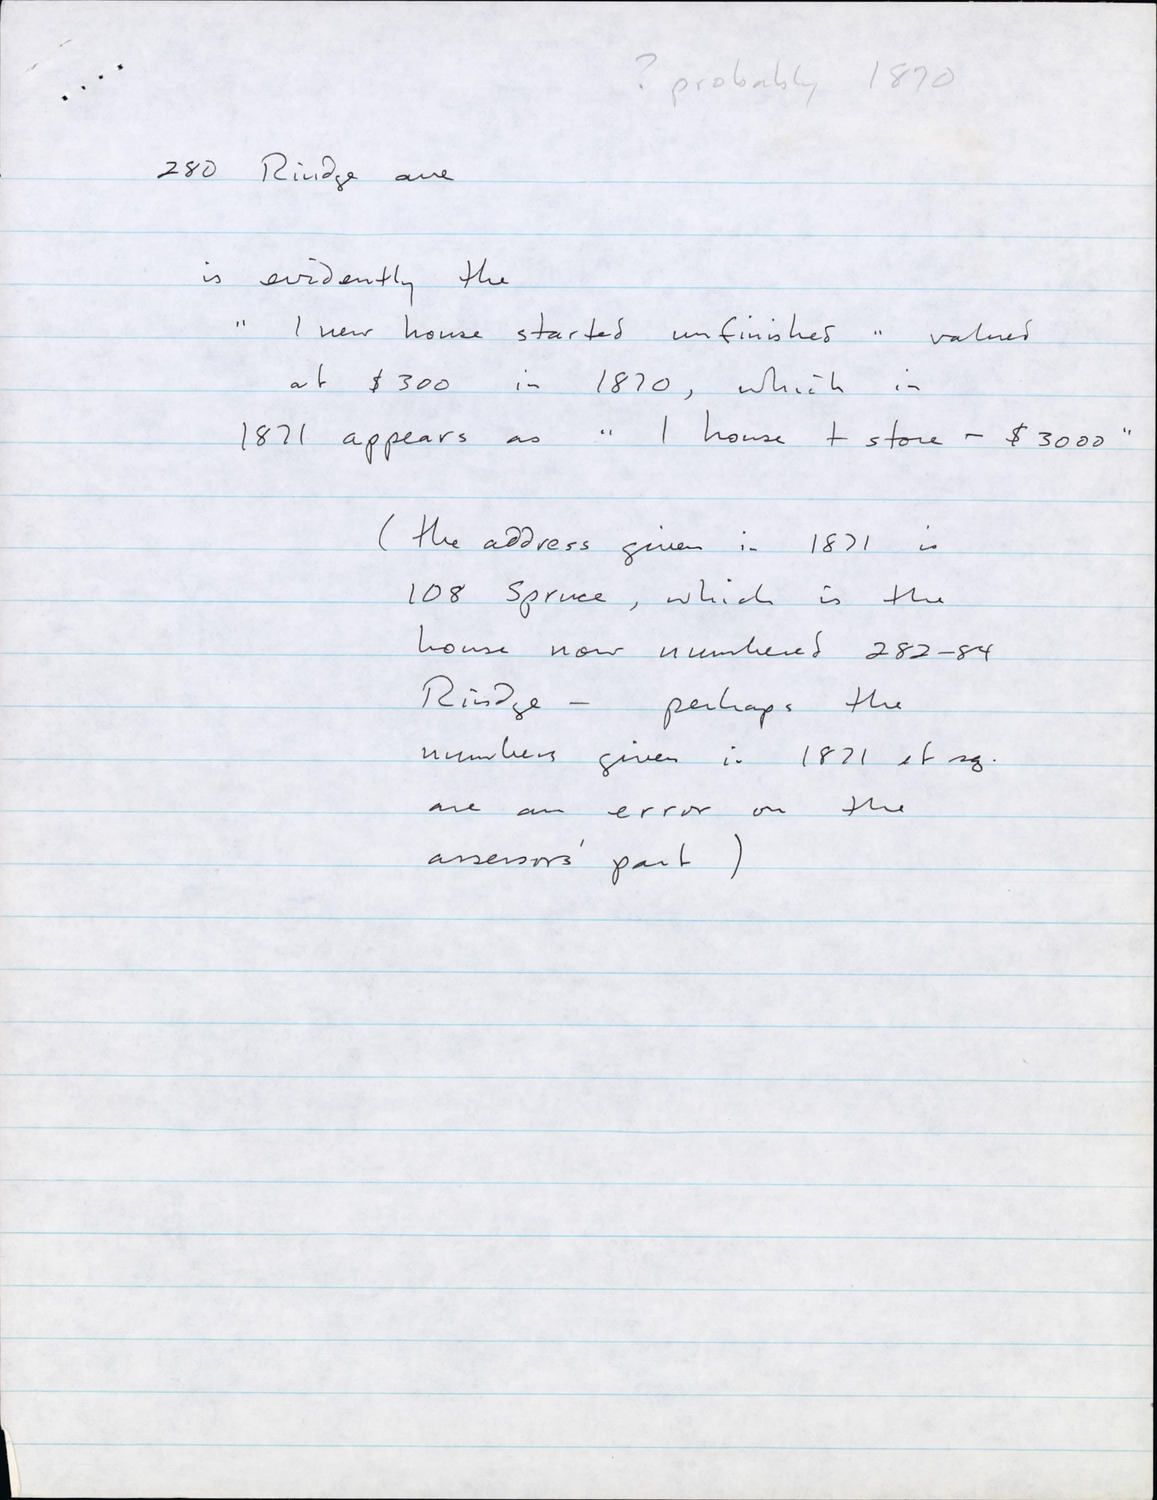 ? probably 1870
280 Rindge ave
is evidently the
" 1 new house started unfinished " valued
at $300 in 1870, which in
1871 appears as " 1 house + store - $3000 "
( the address given in 1871 is
108 Spruce, which is the
house now numbered 282-84
Rindge - perhaps the
numbers given in 1871 et sq.
are an error on the
assessors' part )